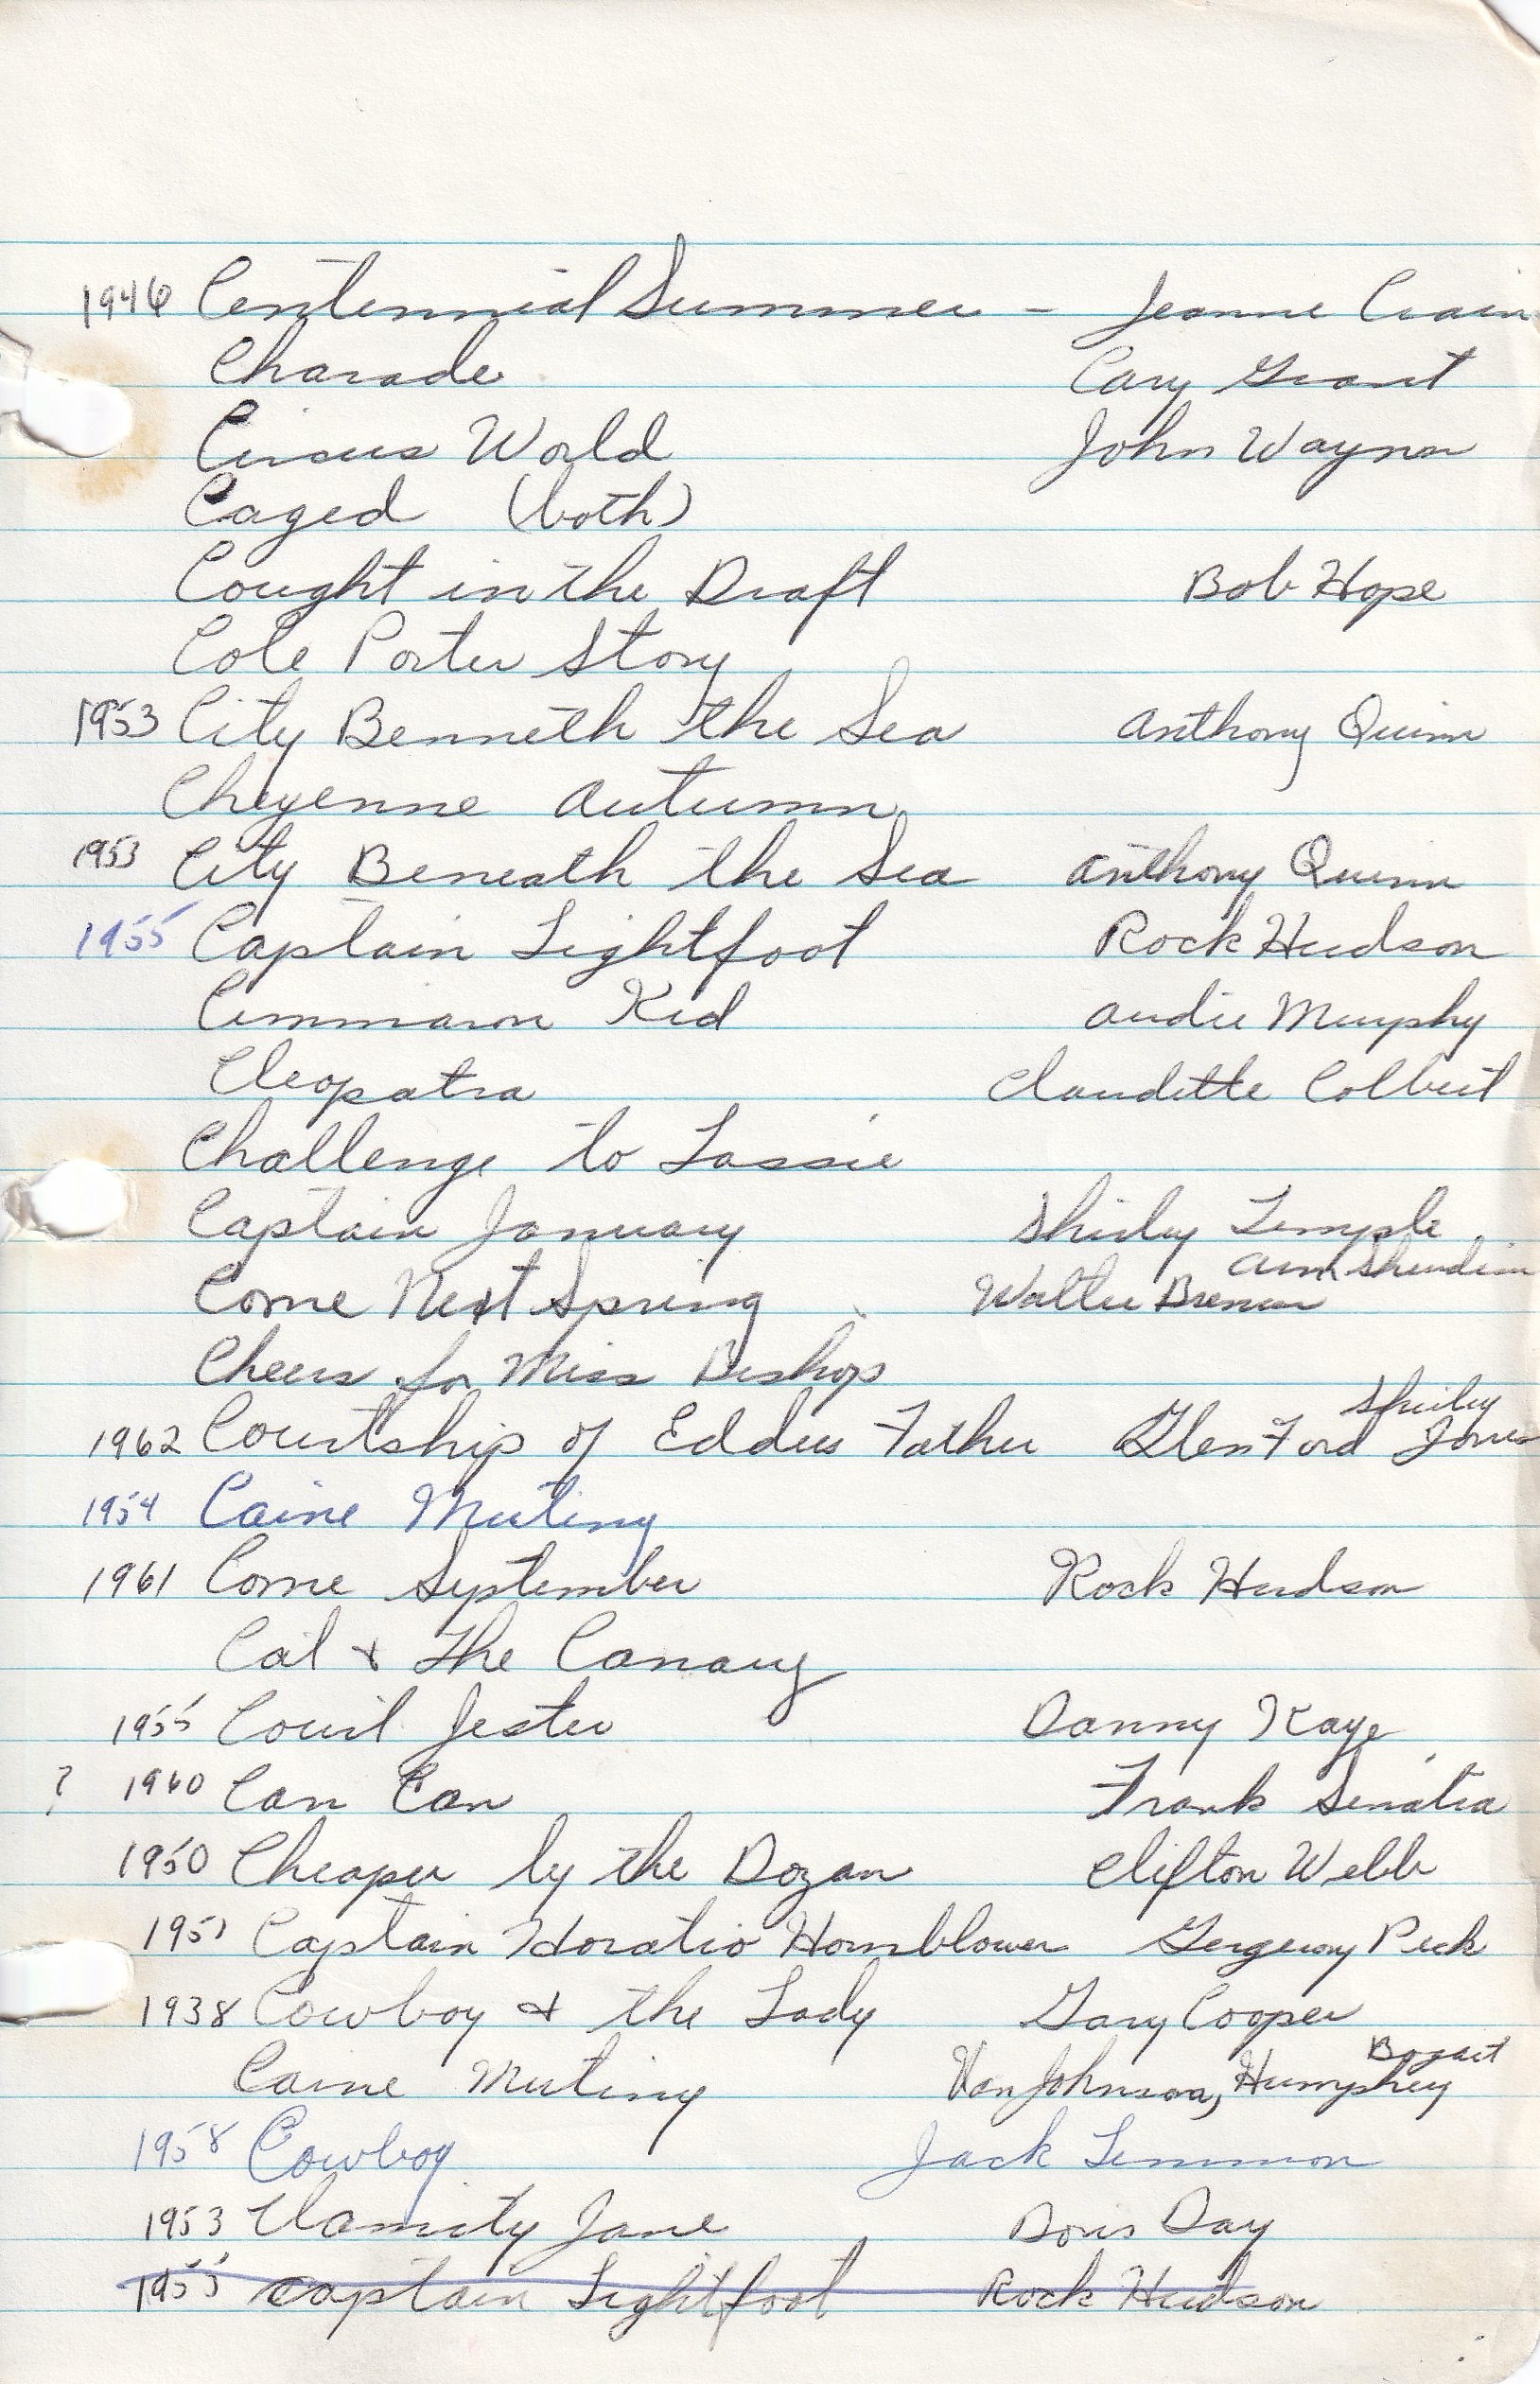 1946 Centennial Summer - Jeanne Crain
Charade Cary Grant
Circus World John Wayne
Caged (both)
Cought in the Draft Bob Hope
Cole Porter Story
1953 City Benneth the Sea Anthony Quinn
Cheyenne Autumn
1953 City Beneath the Sea Anthony Quinn
1955 Captain Lightfoot Rock Hudson
Cimmaron Kid Audie Murphy
Cleopatra Claudette Colbert
Challenge to Lassie
Captain January Shirley Temple
Ann Sheridan
Come Next Spring Walter Brenan
Cheers for Miss Bishop
Shirley
1962 Courtship of Eddies Father Glen Ford Jones
1954 Caine Mutiny
1961 Come September Rock Hudson
Cat & The Canary
1955 Court Jester Danny Kaye
? 1960 Can Can Frank Senatra
1950 Cheaper by the Dozan Clifton Webb
1951 Captain Horatio Hornblower Gergeory Peck
1938 Cowboy & the Lady Gary Cooper
Bogart
Caine Mutiny Van Johnson, Humphrey
1958 Cowboy Jack Lemmon
1953 Clamity Jane Doris Day
1955 Captain Lightfoot Rock Hudson